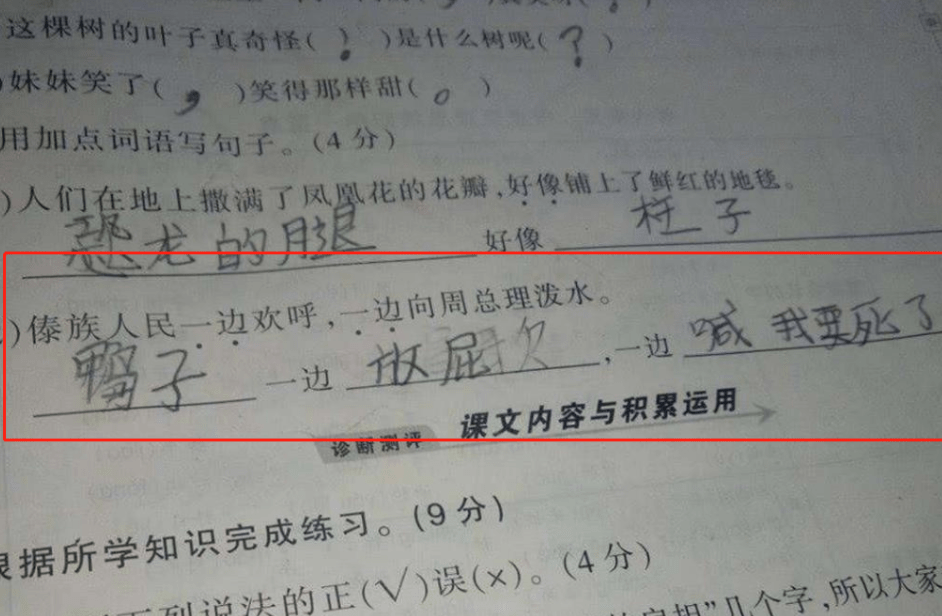 这棵树的叶子真奇怪( ! )是什么树呢( ? )
妹妹笑了( , )笑得那样甜( 。 )
用加点词语写句子。(4分)
)人们在地上撒满了凤凰花的花瓣,好像铺上了鲜红的地毯。
恐龙的腿 好像 柱子
)傣族人民一边欢呼,一边向周总理泼水。
鸭子 一边 放屁 ,一边 喊我要死了
诊断测评 课文内容与积累运用
根据所学知识完成练习。(9分)
下列说法的正(√)误(×)。(4分)
几个字,所以大家